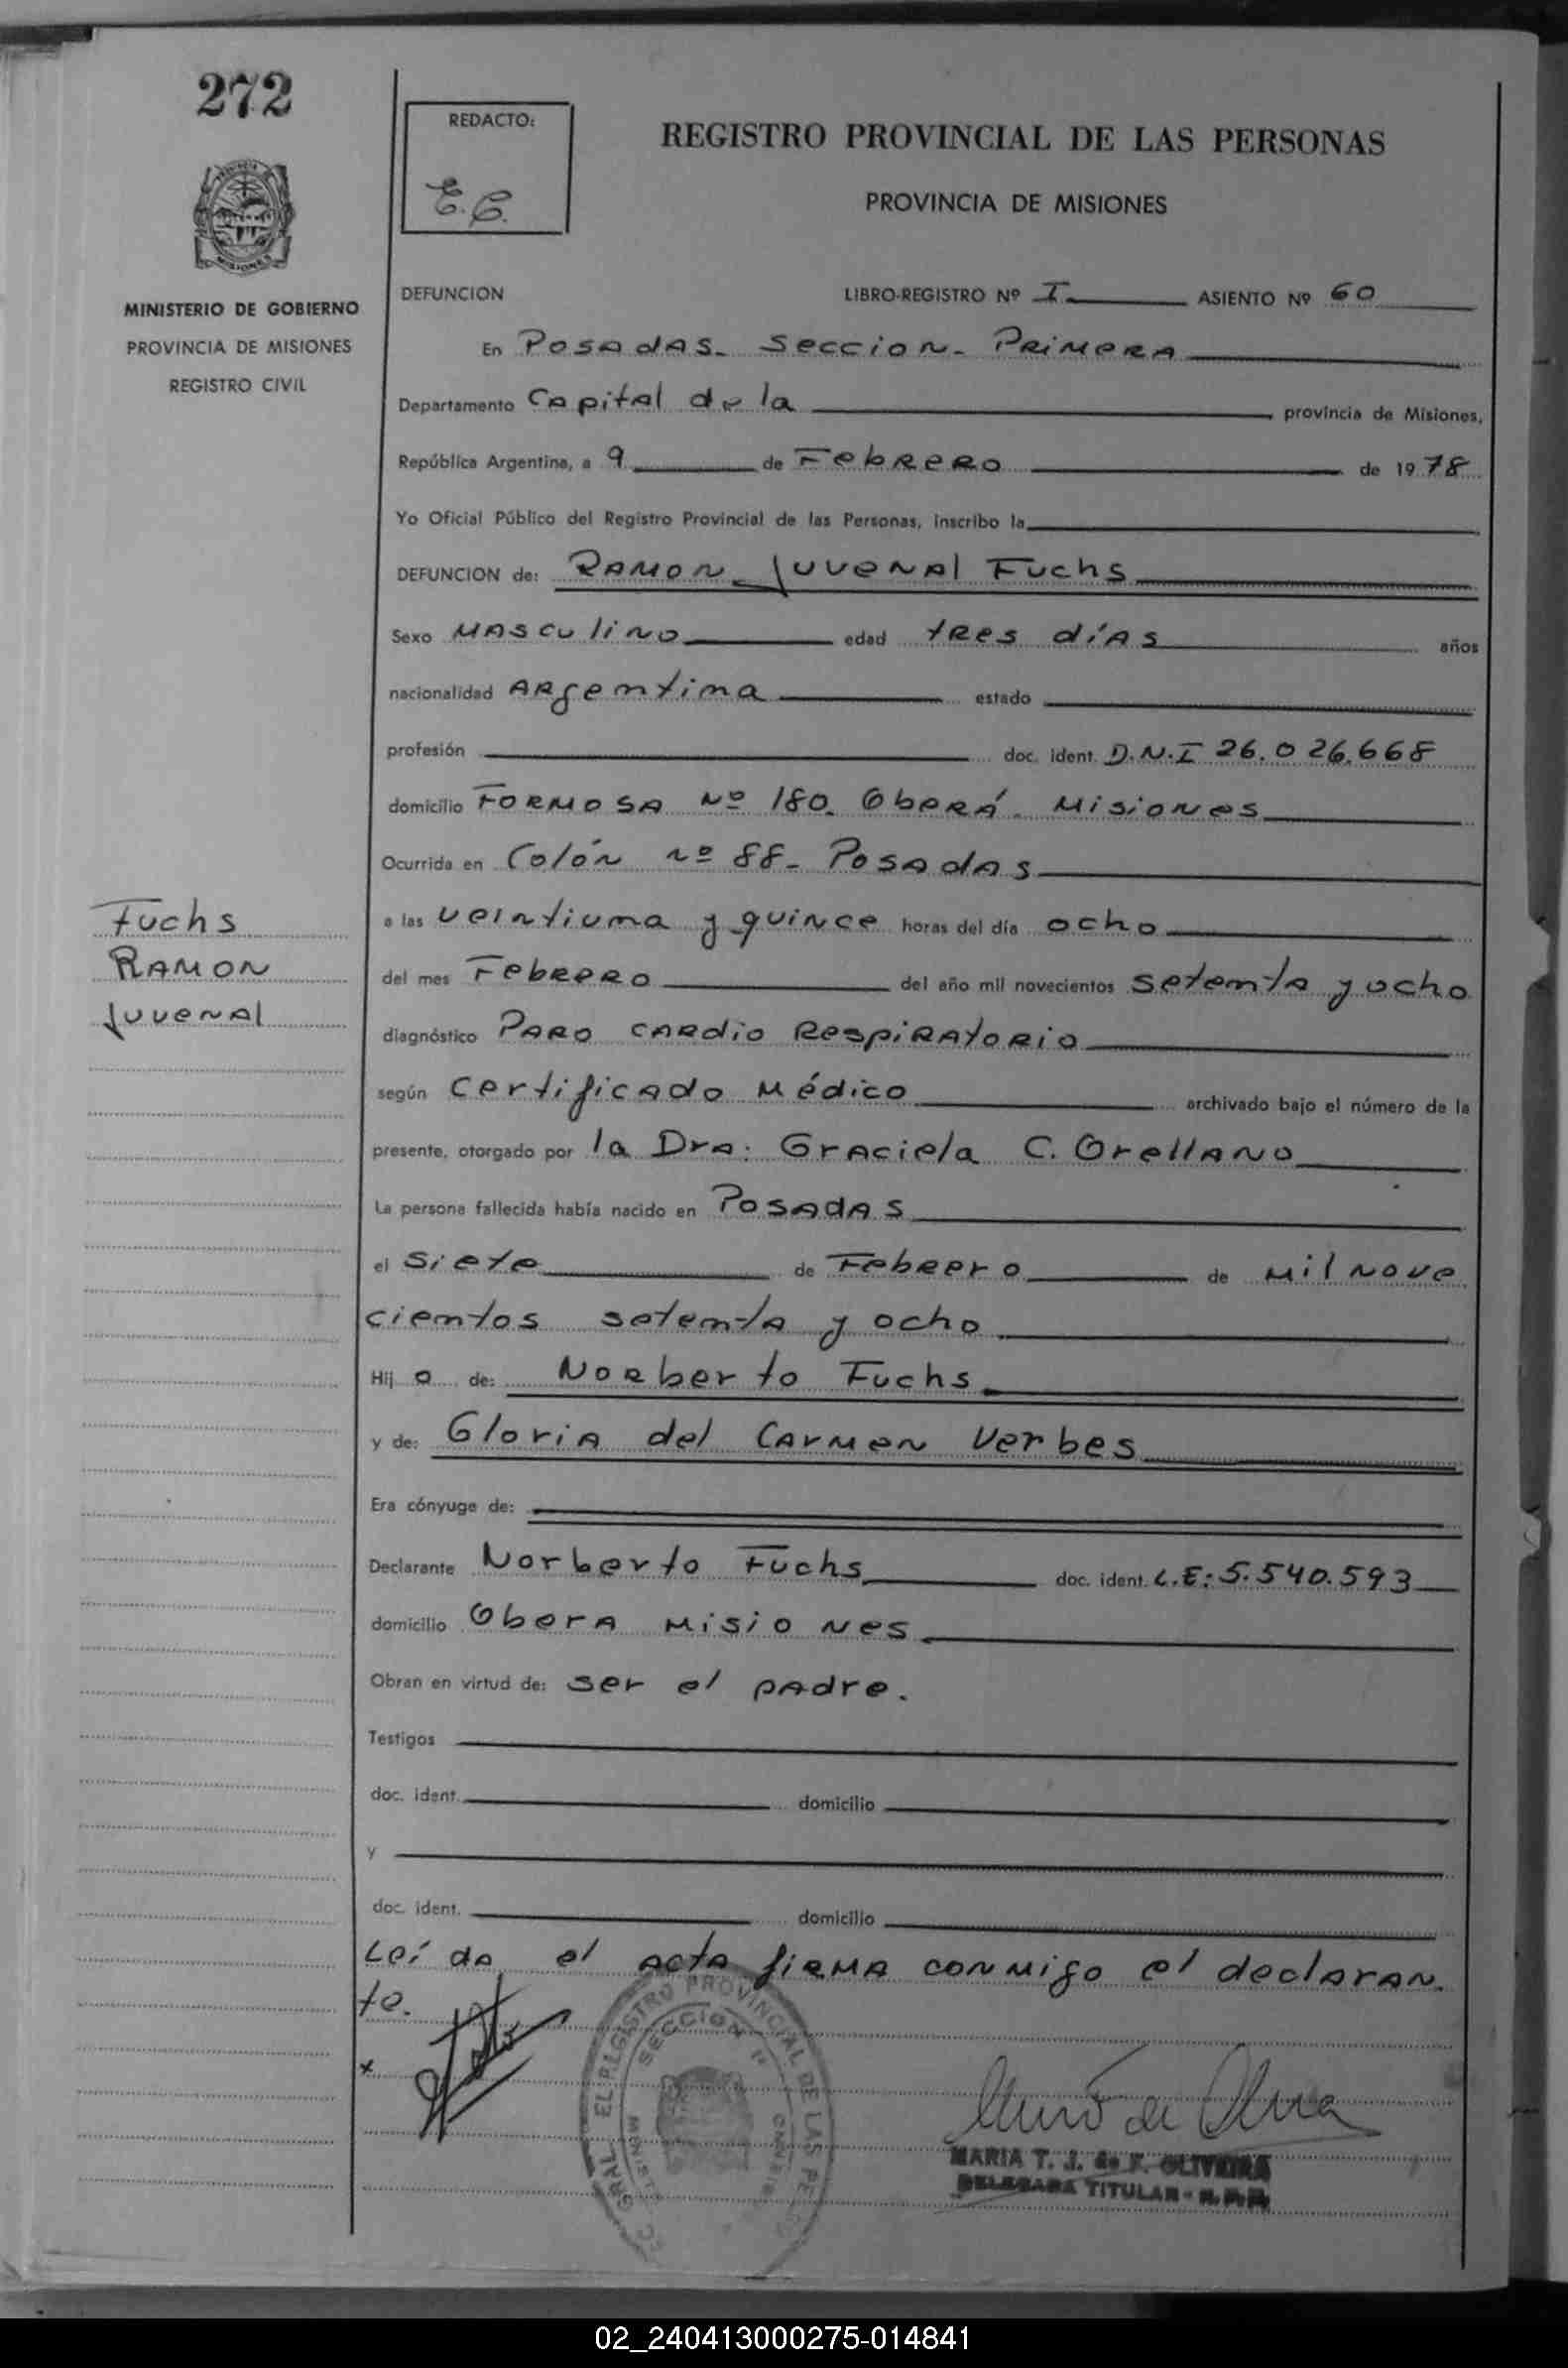 272
REDACTO:
E.C.
REGISTRO PROVINCIAL DE LAS PERSONAS
PROVINCIA DE MISIONES
MINISTERIO DE GOBIERNO
PROVINCIA DE MISIONES
REGISTRO CIVIL
DEFUNCION LIBRO-REGISTRO Nº I ASIENTO Nº 60
En Posadas. Seccion. Primera
Departamento Capital de la provincia de Misiones,
República Argentina, a 9 de Febrero de 1978
Yo Oficial Público del Registro Provincial de las Personas, inscribo la
DEFUNCION de: Ramon Juvenal Fuchs
Sexo Masculino edad tres días años
nacionalidad Argentina estado
profesión doc. ident. D.N.I 26.026.668
domicilio Formosa Nº 180. Oberá. Misiones
Ocurrida en Colón nº 88- Posadas
a las veintiuna y quince horas del día ocho
del mes Febrero del año mil novecientos setenta y ocho
diagnóstico Paro cardio Respiratorio
según certificado Médico archivado bajo el número de la
presente, otorgado por la Dra: Graciela C. Orellano
La persona fallecida había nacido en Posadas
el Siete de Febrero de Mil nove
cientos setenta y ocho
Hij o de: Norberto Fuchs
y de: Gloria del Carmen Verbes
Era cónyuge de:
Declarante Norberto Fuchs doc. ident. L.E: 5.540.593
domicilio Obera Misiones
Obran en virtud de: ser el padre.
Testigos
doc. ident. domicilio
y
doc. ident. domicilio
Leída el acta firma conmigo el declaran
te.
x
Fuchs
Ramon
Juvenal
EL REGISTRO PROVINCIAL DE LAS PE
SECCION 1ª
MARIA T. J. de F. OLIVEIRA
DELEGADA TITULAR - R.P.P.
02_240413000275-014841